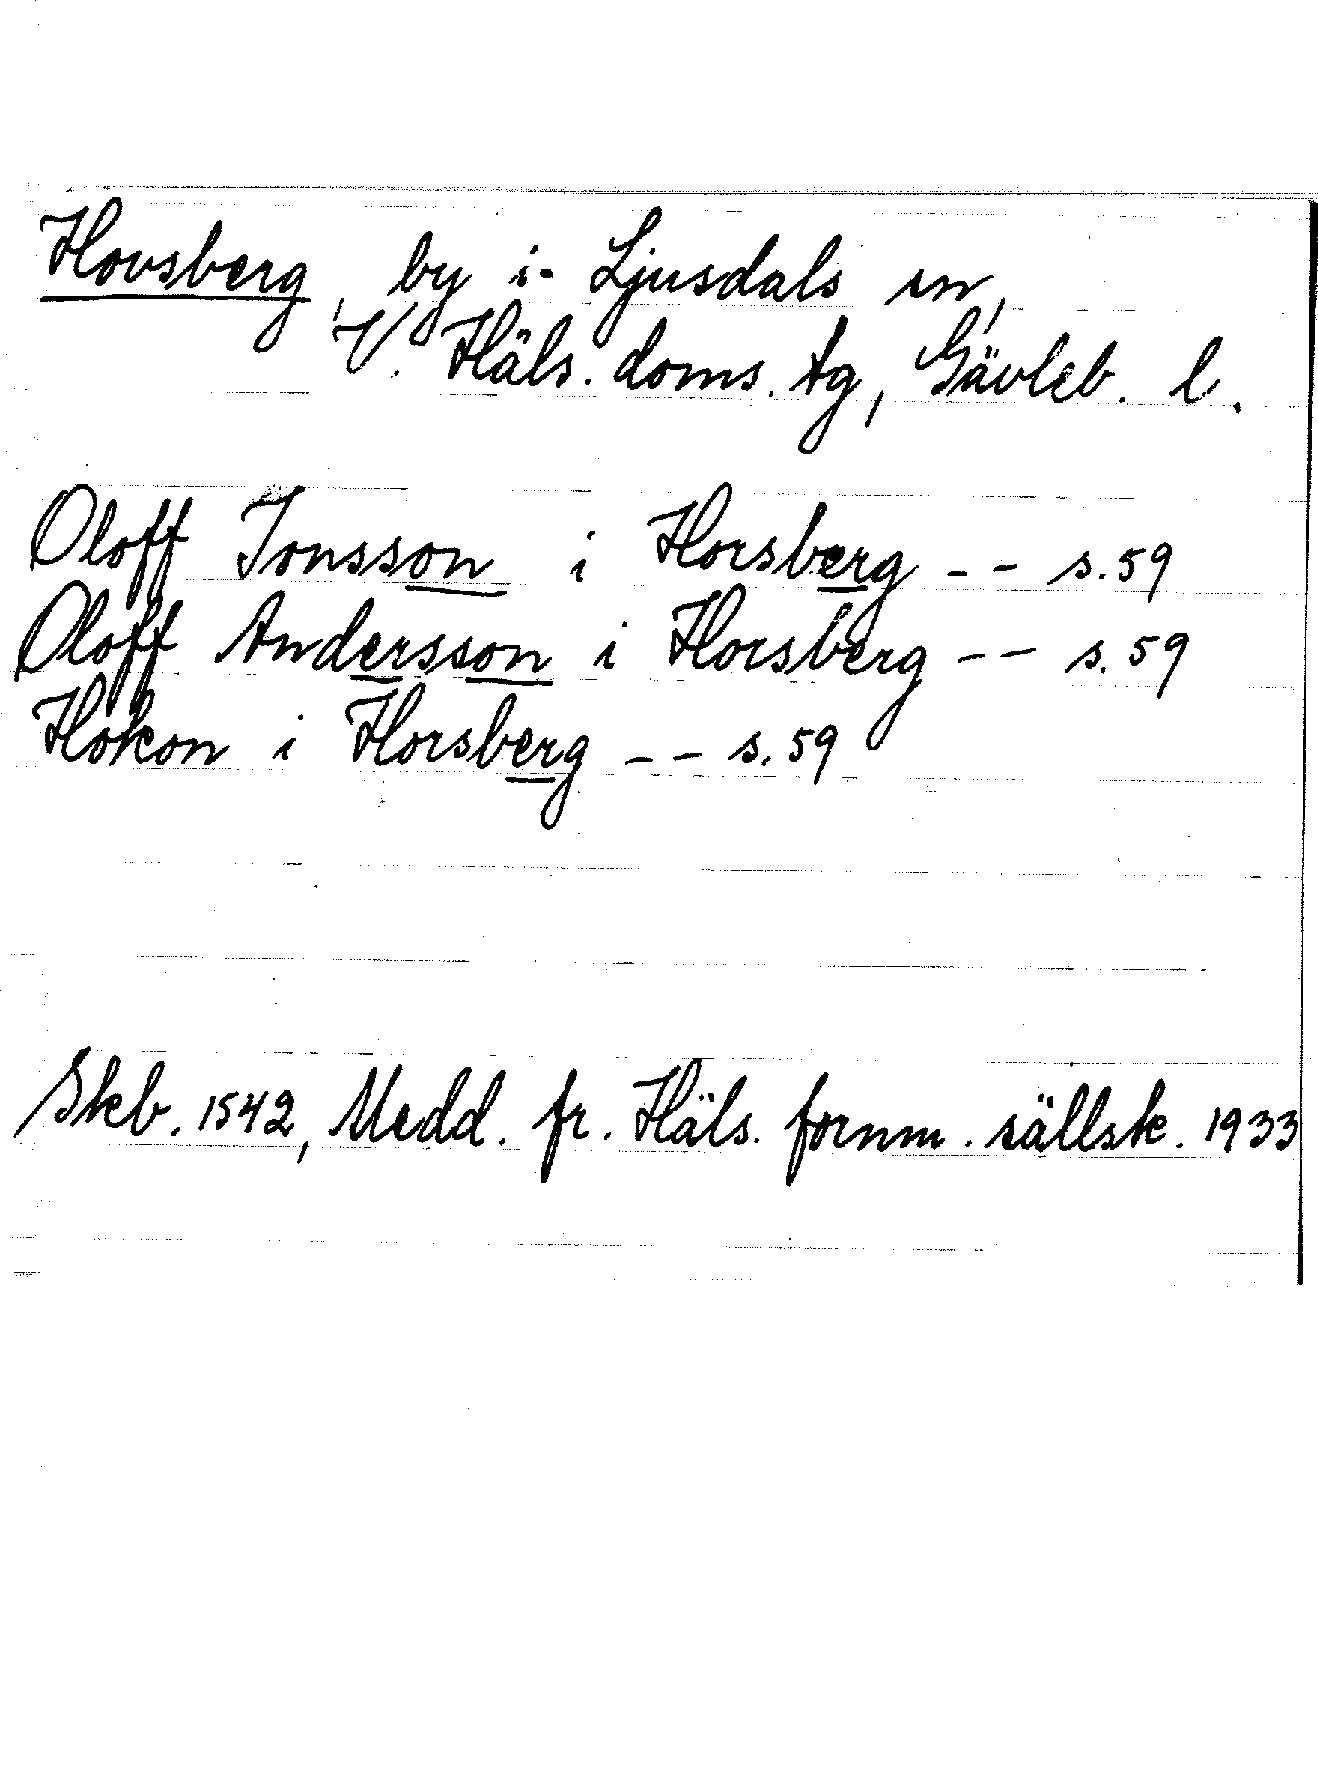 Hovsberg, by i Ljusdals sn,
V. Häls. doms. tg, Gävleb. l.
Oloff Jonsson i Horsberg -- s. 59
Oloff Andersson i Horsberg -- s. 59
Hokon i Horsberg -- s. 59
Skb. 1542, Medd. fr. Häls. fornm. sällsk. 1933